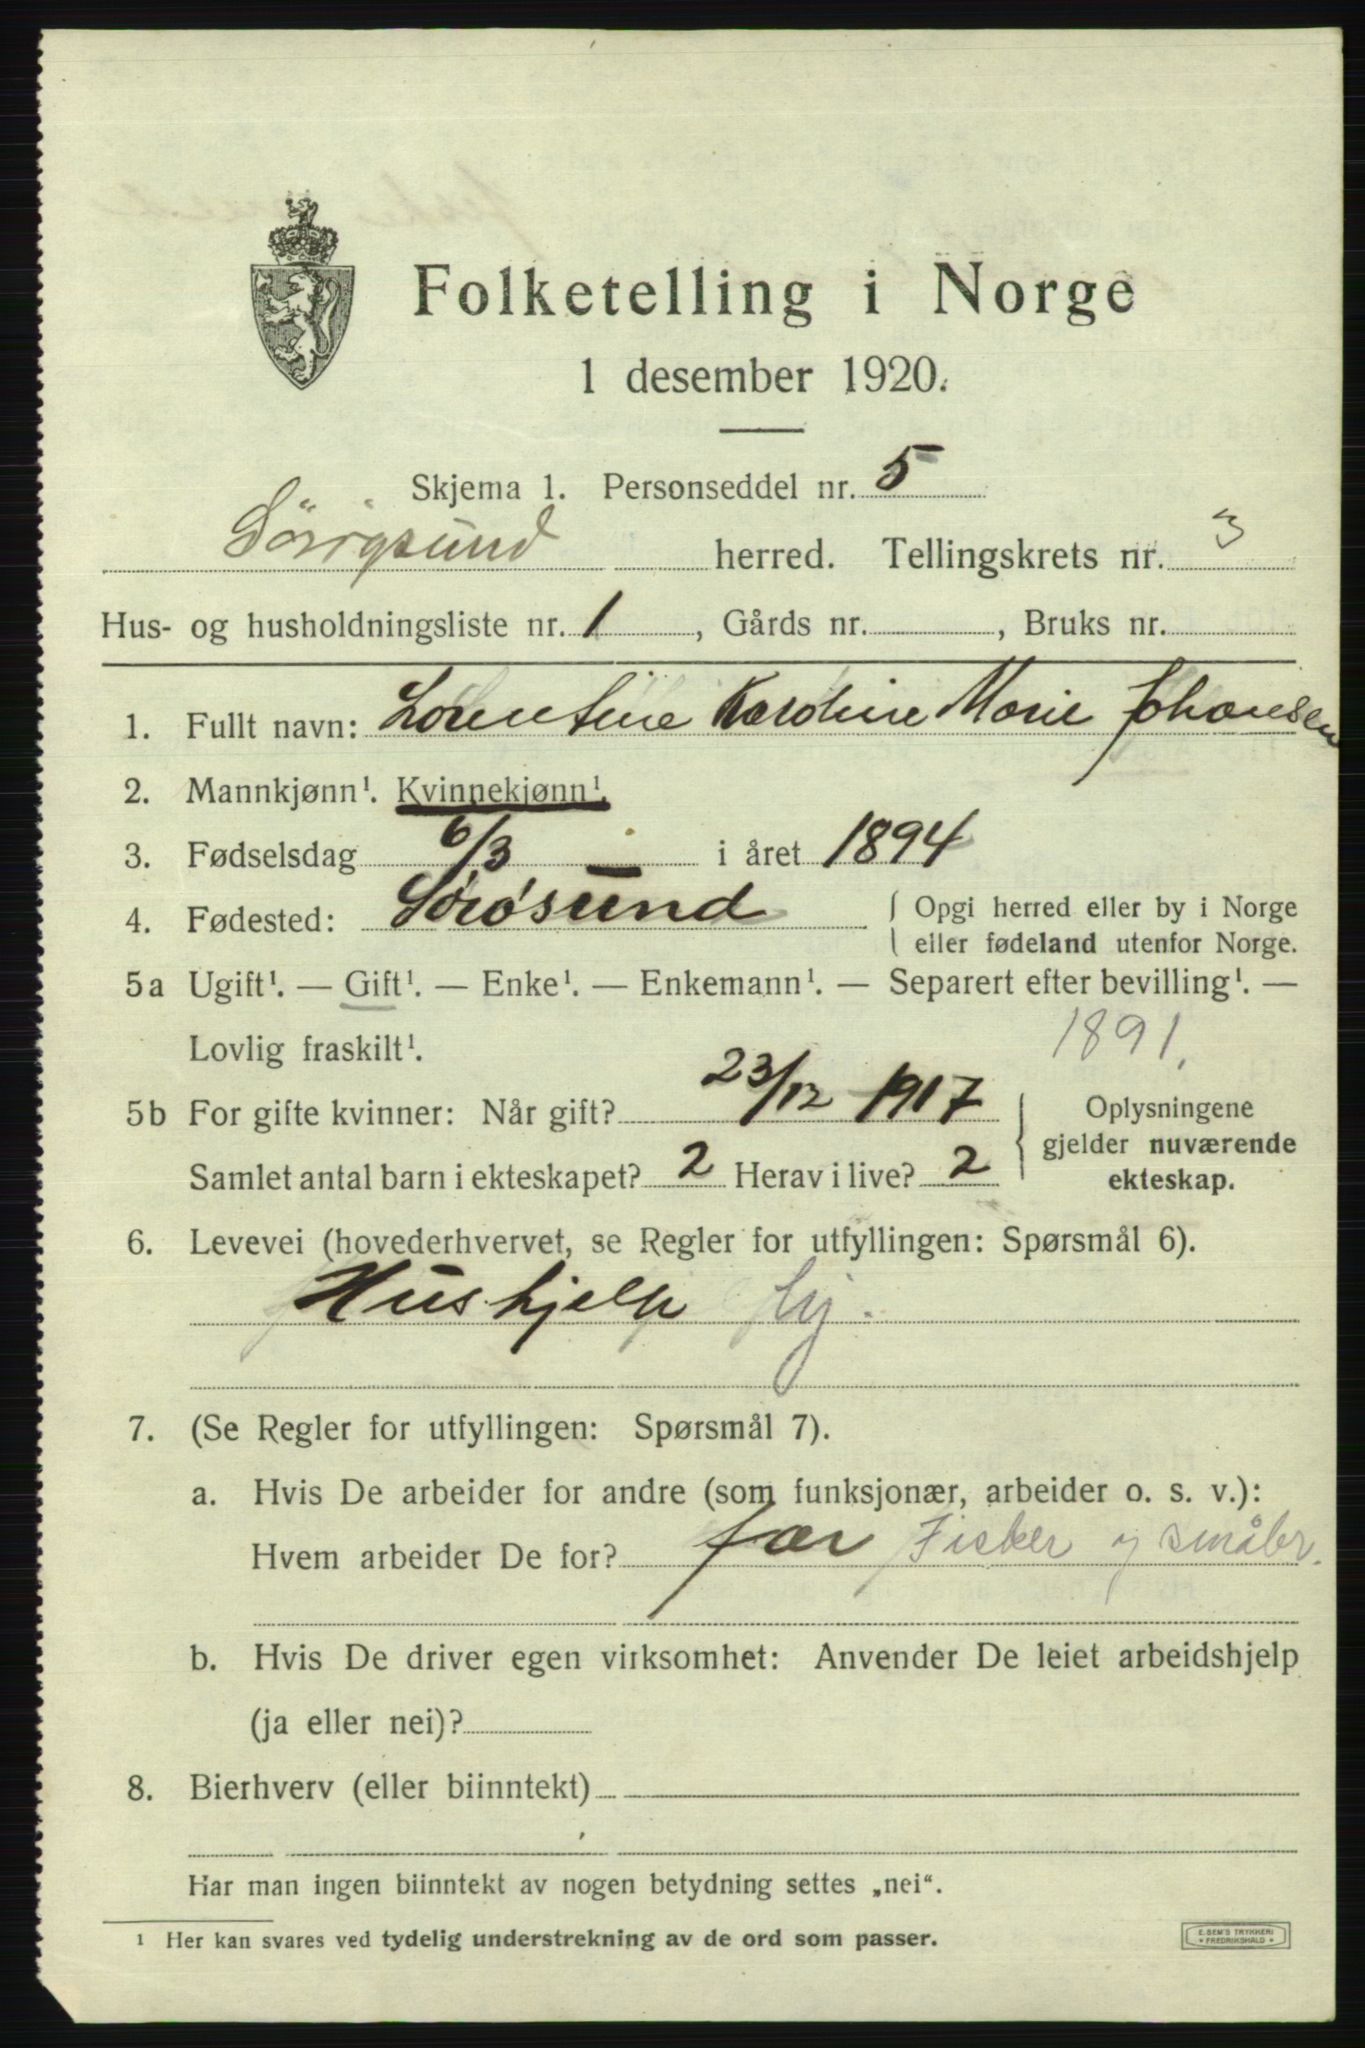 Folketelling i Norge
1 desember 1920.
Skjema 1. Personseddel nr. 5
Sörøysund herred. Tellingskrets nr. 3
Hus- og husholdningsliste nr. 1, Gårds nr. , Bruks nr.
1. Fullt navn: Lorentine Karoline Marie Johansen
2. Mannkjønn¹. Kvinnekjønn¹.
3. Fødselsdag 6/3 i året 1894
4. Fødested: Sørøsund { Opgi herred eller by i Norge
eller fødeland utenfor Norge.
5a Ugift¹. — Gift¹. — Enke¹. — Enkemann¹. — Separert efter bevilling¹. —
Lovlig fraskilt¹. 1891.
5b For gifte kvinner: Når gift? 23/12 1917 } Oplysningene
gjelder nuværende
Samlet antal barn i ekteskapet? 2 Herav i live? 2 ekteskap.
6. Levevei (hovederhvervet, se Regler for utfyllingen: Spørsmål 6).
Hushjelp
7. (Se Regler for utfyllingen: Spørsmål 7).
a. Hvis De arbeider for andre (som funksjonær, arbeider o. s. v.):
Hvem arbeider De for? far Fisker og småbr.
b. Hvis De driver egen virksomhet: Anvender De leiet arbeidshjelp
(ja eller nei)?
8. Bierhverv (eller biinntekt)
Har man ingen biinntekt av nogen betydning settes „nei“.
¹ Her kan svares ved tydelig understrekning av de ord som passer.
E. SEM'S TRYKKERI
* FREDRIKSHALD *